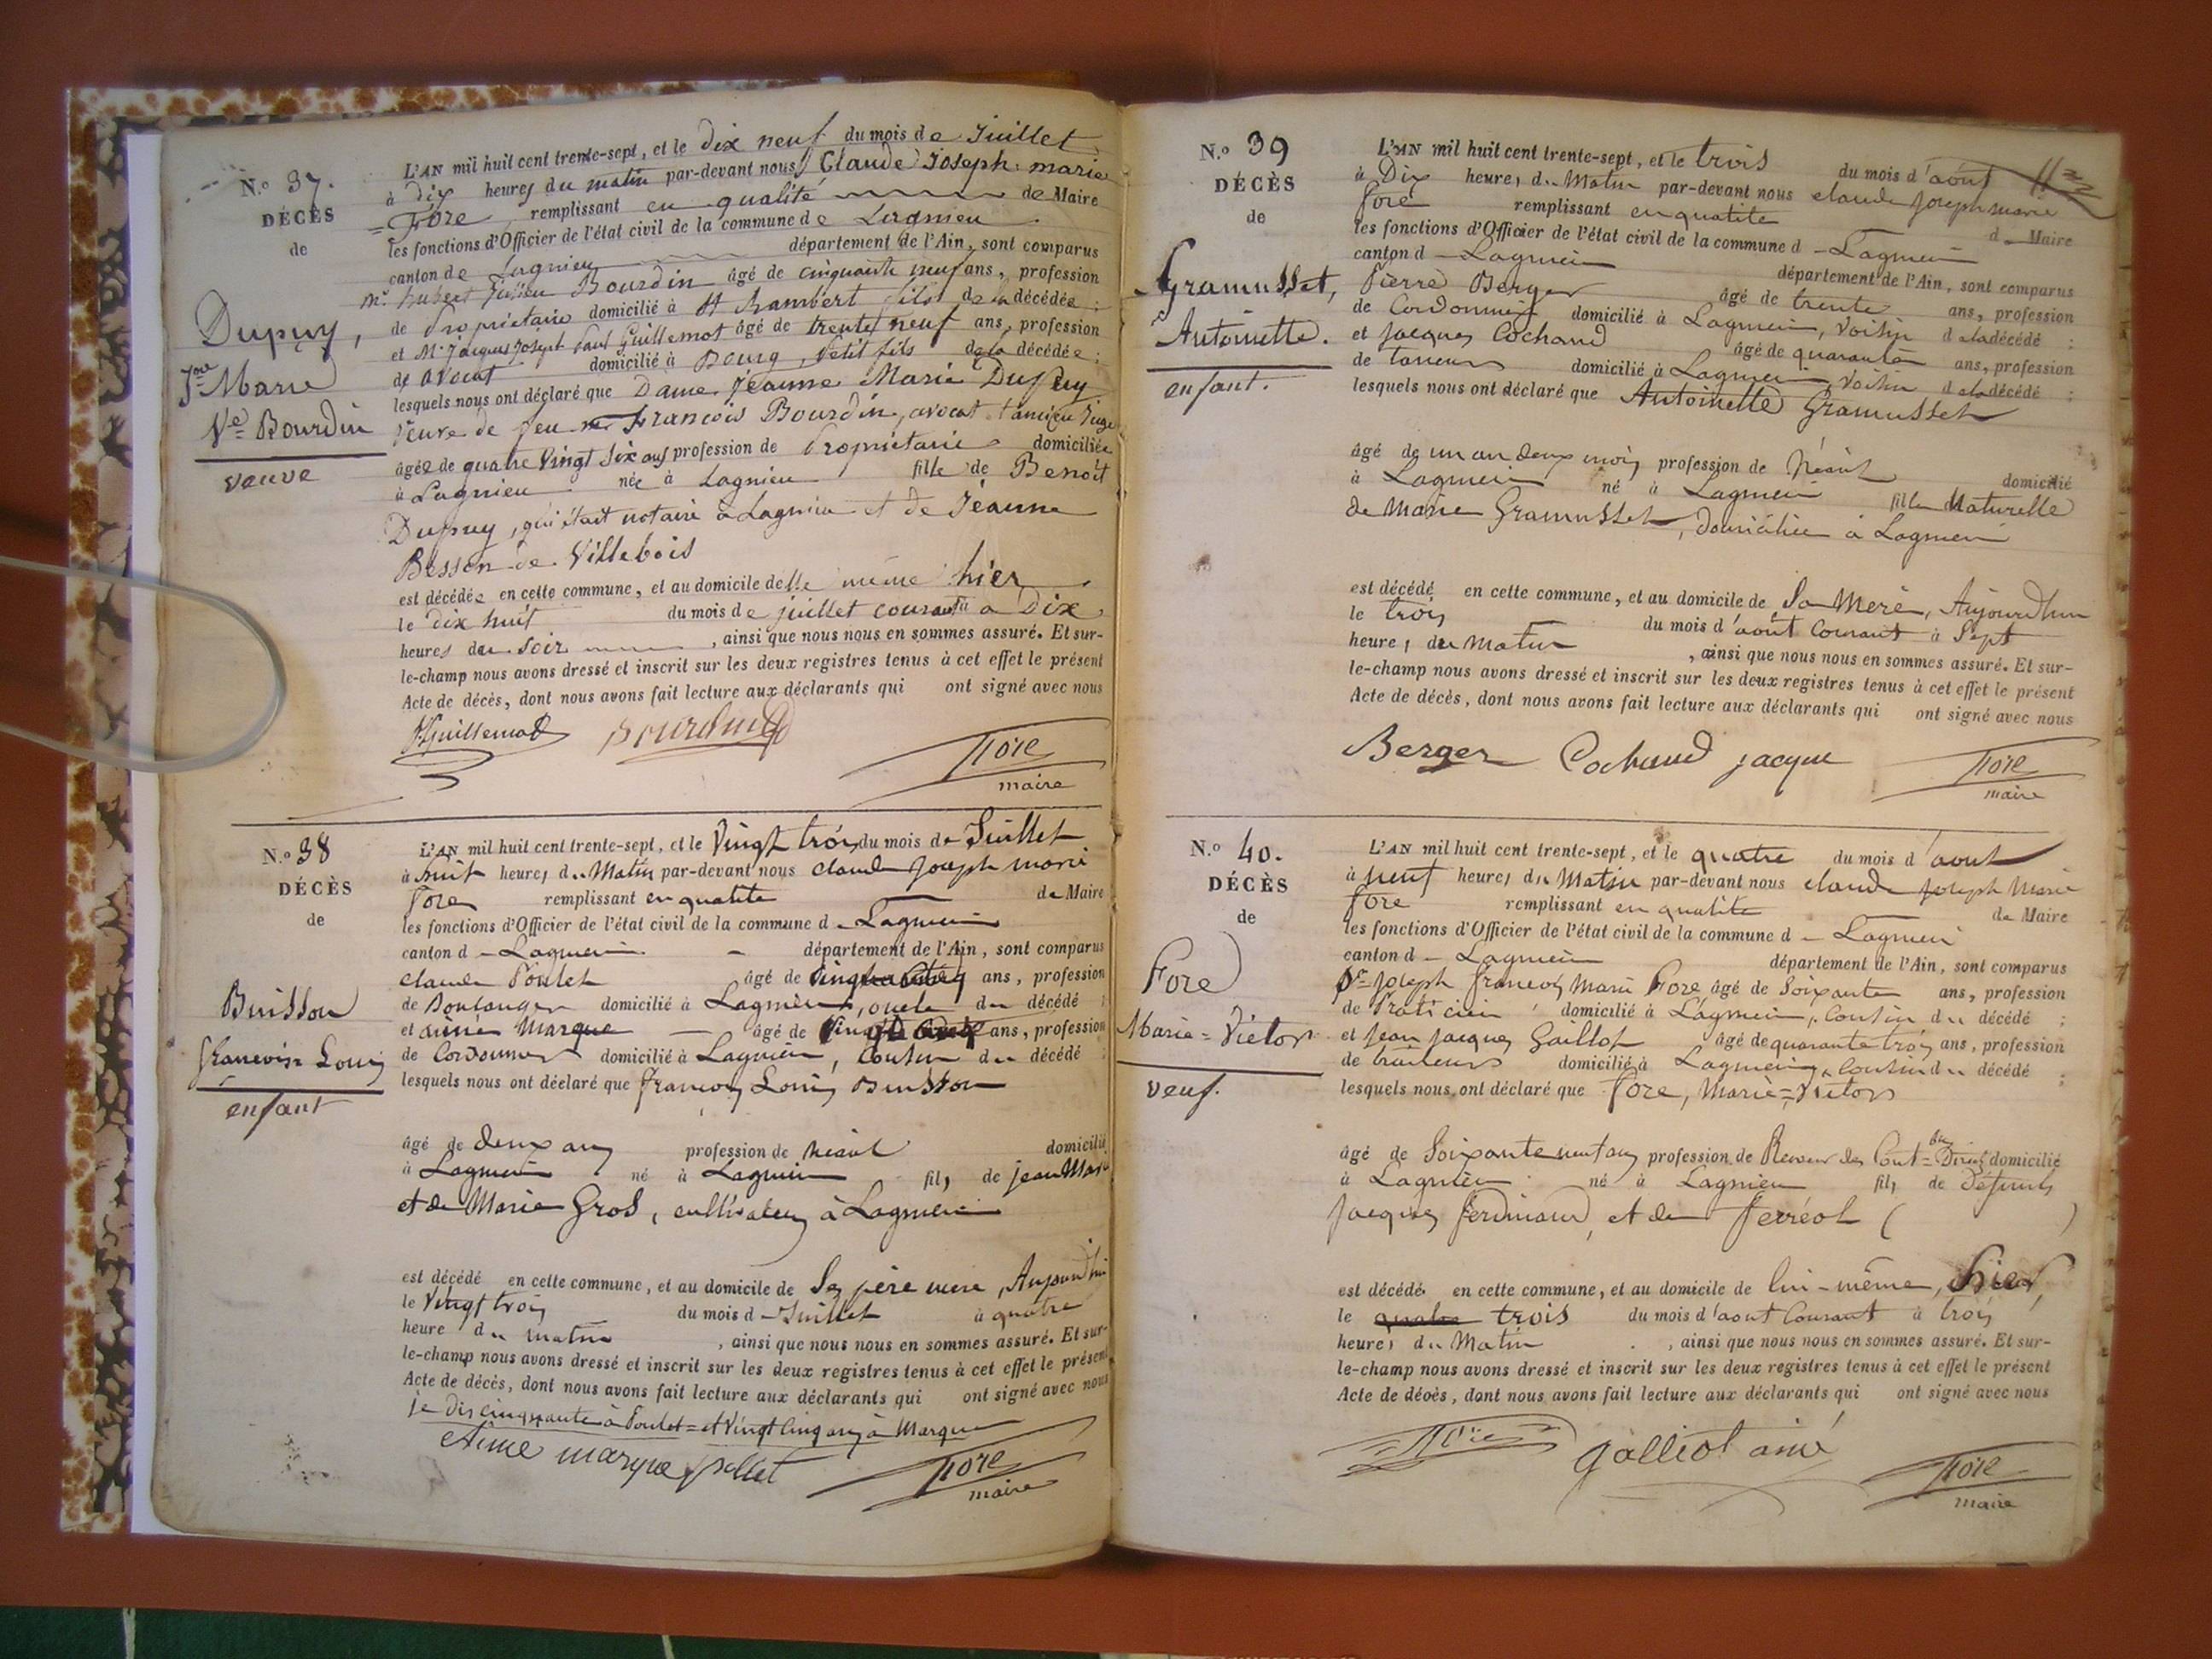 N.º 37.
DÉCÈS
de
Dupuy,
Jne Marie
Ve Bourdin
veuve
L'AN mil huit cent trente-sept, et le dix neuf du mois de Juillet
à dix heures du matin par-devant nous Claude Joseph marie
Fore remplissant en qualité de Maire
les fonctions d'Officier de l'état civil de la commune de Lagnieu
canton de Lagnieu département de l'Ain, sont comparus
Mr. hubert Bourdin âgé de cinquante neuf ans, profession
de Proprietaire domicilié à St Rambert fils de la décédée ;
et Mr. Jacques Joseph Paul Guillemot âgé de trente neuf ans, profession
de avocat domicilié à Bourg, Petit fils de la décédée ;
lesquels nous ont déclaré que Dame Jeanne Marie Dupuy
Veuve de feu mr François Bourdin, avocat & ancien Juge
âgée de quatre Vingt Six ans profession de Propriétaire domiciliée
à Lagnieu née à Lagnieu fille de Benoît
Dupuy, qui était notaire à Lagnieu et de Jeanne
Besson de Villebois
est décédée en cette commune, et au domicile d'elle même hier
le dix huit du mois de juillet courant à Dix
heures du Soir , ainsi que nous nous en sommes assuré. Et sur-
le-champ nous avons dressé et inscrit sur les deux registres tenus à cet effet le présent
Acte de décès, dont nous avons fait lecture aux déclarants qui ont signé avec nous
Guillemot Bourdin Fore
maire
N.º 38
DÉCÈS
de
Buisson
françois Louis
enfant
L'AN mil huit cent trente-sept, et le Vingt trois du mois de Juillet
à huit heures du Matin par-devant nous claude Joseph marie
Fore remplissant en qualité de Maire
les fonctions d'Officier de l'état civil de la commune d Lagnieu
canton d Lagnieu département de l'Ain, sont comparus
claude Poulet âgé de ans, profession
de Boulanger domicilié à Lagnieu, oncle du décédé ;
et aimé Marque âgé de ans, profession
de Cordonnier domicilié à Lagnieu, Cousin du décédé ;
lesquels nous ont déclaré que françois Louis Buisson
âgé de deux ans profession de néant domicilié
à Lagnieu né à Lagnieu fils de jean Marie
et de Marie Gros, cultivateurs à Lagnieu
est décédé en cette commune, et au domicile de Ses père mère, Aujourd'hui
le Vingt trois du mois d Juillet à quatre
heure du matin , ainsi que nous nous en sommes assuré. Et sur-
le-champ nous avons dressé et inscrit sur les deux registres tenus à cet effet le présent
Acte de décès, dont nous avons fait lecture aux déclarants qui ont signé avec nous
je dis cinquante à Poulet = et Vingt Cinq ans à Marque
Aime marque pollet Fore
maire
N.º 39
DÉCÈS
de
Gramusset,
Antoinette.
enfant.
L'AN mil huit cent trente-sept, et le trois du mois d'août
à Dix heures du Matin par-devant nous claude Joseph marie
fore remplissant en qualite d Maire
les fonctions d'Officier de l'état civil de la commune d Lagnieu
canton d Lagnieu département de l'Ain, sont comparus
Pierre Berger âgé de trente ans, profession
de Cordonnier domicilié à Lagnieu, Voisin de la décédé ;
et Jacques Cochand âgé de quarante ans, profession
de tanneur domicilié à Lagnieu, Voisin de la décédé ;
lesquels nous ont déclaré que Antoinette Gramusset
âgé de un an deux mois profession de Néant domicilié
à Lagnieu né à Lagnieu fille Naturelle
de Marie Gramusset, domiciliée à Lagnieu
est décédé en cette commune, et au domicile de Sa Mère, Aujourdhui
le trois du mois d'août Courant à Sept
heures du Matin , ainsi que nous nous en sommes assuré. Et sur-
le-champ nous avons dressé et inscrit sur les deux registres tenus à cet effet le présent
Acte de décès, dont nous avons fait lecture aux déclarants qui ont signé avec nous
Berger Cochand jacque Fore
maire
N.º 40.
DÉCÈS
de
Fore
Marie=Victor
veuf.
L'AN mil huit cent trente-sept, et le quatre du mois d'aout
à neuf heures du Matin par-devant nous claude Joseph Marie
fore remplissant en qualité de Maire
les fonctions d'Officier de l'état civil de la commune d Lagnieu
canton d Lagnieu département de l'Ain, sont comparus
Joseph françois Marie Fore âgé de Soixante ans, profession
de Praticien domicilié à Lagnieu, Cousin du décédé ;
et Jean Jacques Gaillot âgé de quarante trois ans, profession
de traiteur domicilié à Lagnieu, Cousin du décédé ;
lesquels nous ont déclaré que Fore, Marie=Victor
âgé de Soixante ans profession de domicilié
à Lagnieu né à Lagnieu fils de Défunts
Jacques Ferdinand, et de Ferréol ( )
est décédé en cette commune, et au domicile de lui-même, hier,
le quatre trois du mois d'aout Courant à trois
heures du Matin , ainsi que nous nous en sommes assuré. Et sur-
le-champ nous avons dressé et inscrit sur les deux registres tenus à cet effet le présent
Acte de décès, dont nous avons fait lecture aux déclarants qui ont signé avec nous
Fore galliot ainé Fore
maire